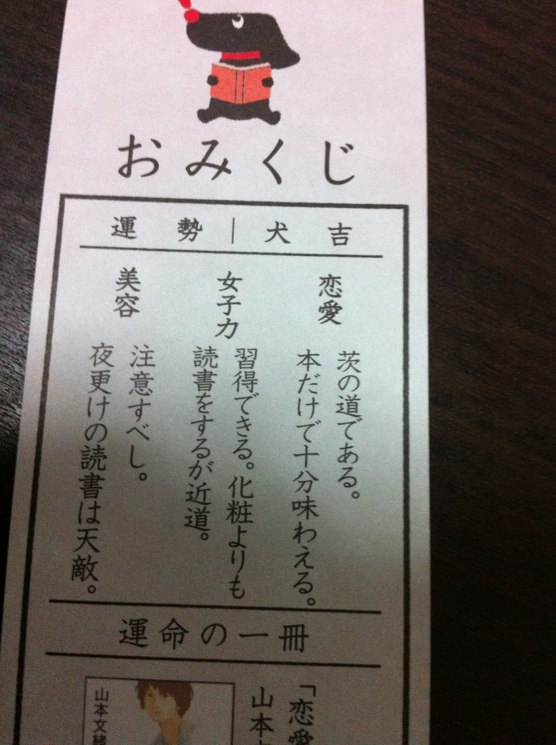 おみくじ
運勢｜犬吉
恋愛
茨の道である。
本だけで十分味わえる。
女子力
習得できる。化粧よりも
読書をするが近道。
美容
注意すべし。
夜更けの読書は天敵。
運命の一冊
「恋愛
山本
山本文緒